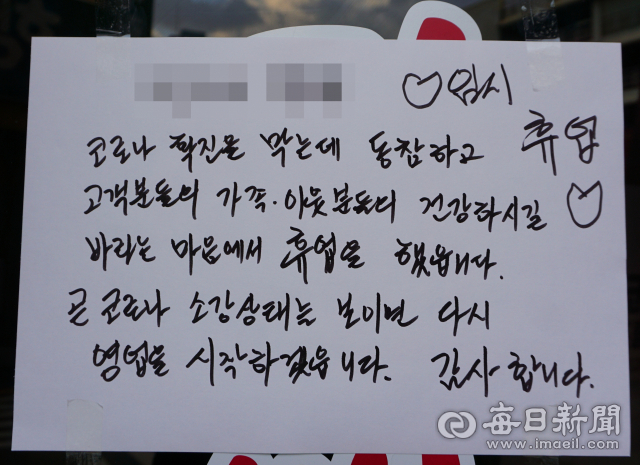 임시
휴업
코로나 확진을 막는데 동참하고
고객분들의 가족·이웃분들의 건강하시길
바라는 마음에서 휴업을 했읍니다.
곧 코로나 소강상태를 보이면 다시
영업을 시작하겠읍니다. 감사합니다.
每日新聞
www.imaeil.com